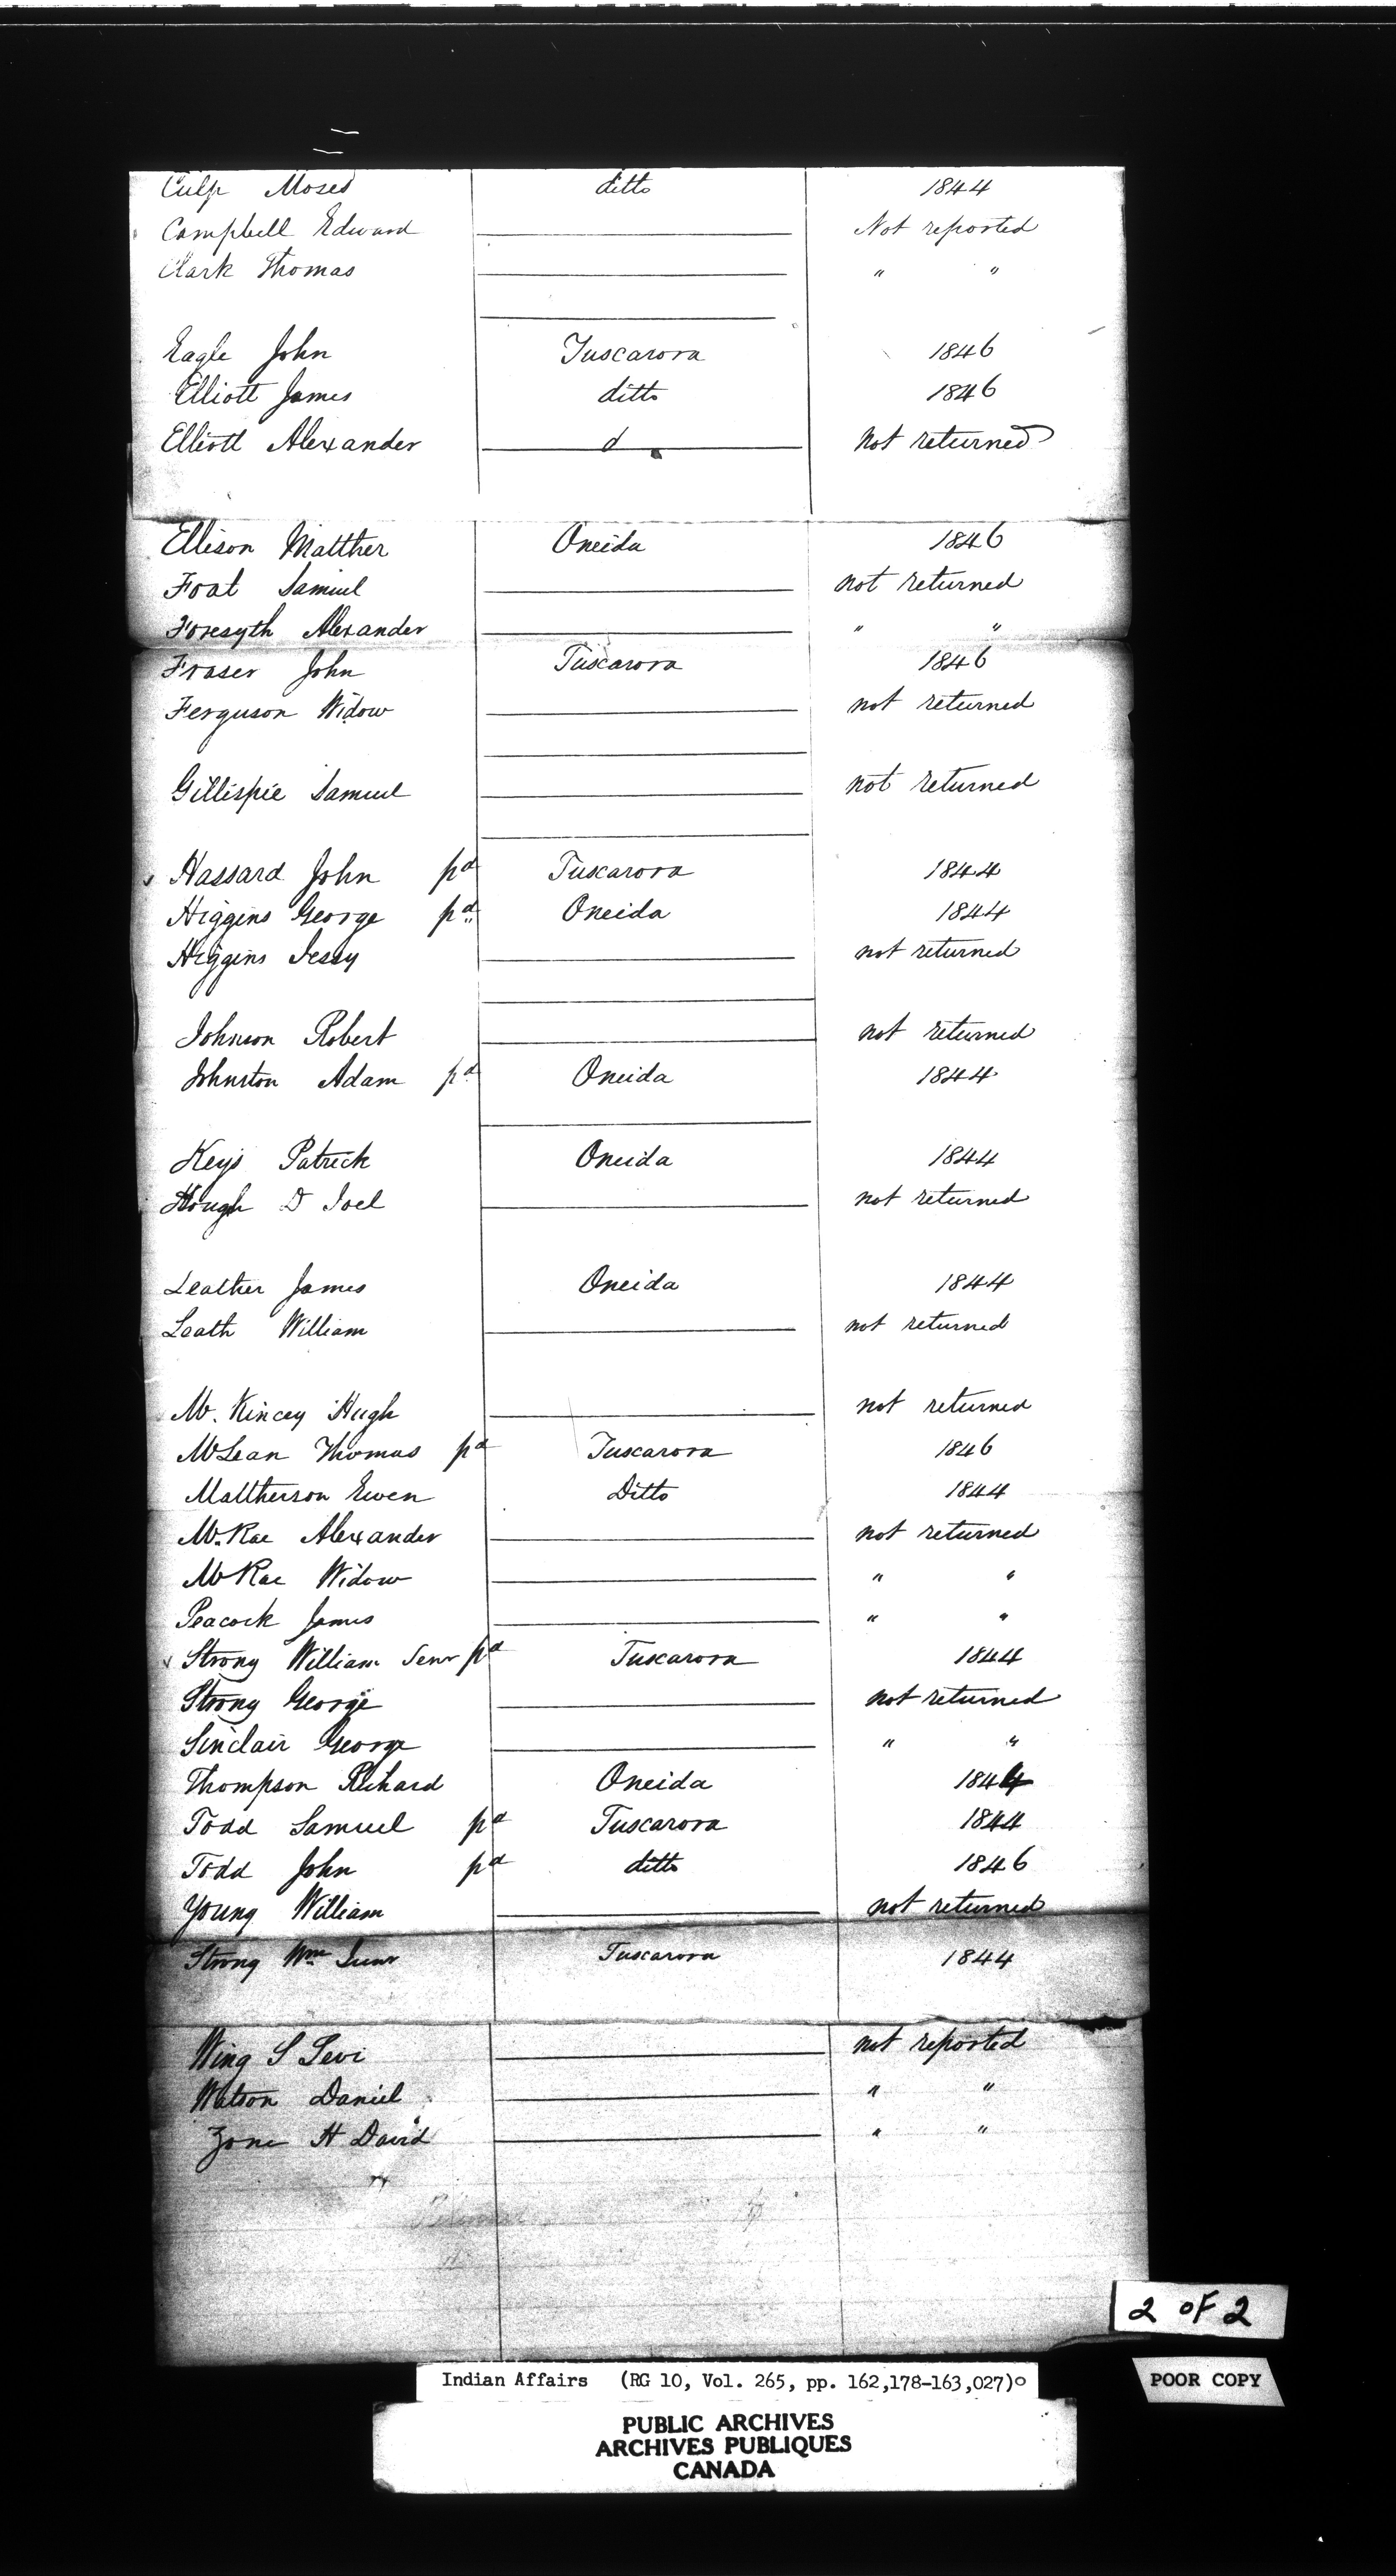 Culp Moses ditto 1844
Campbell Edward Not reported
Clark Thomas " "
Eagle John Tuscarora 1846
Elliott James ditto 1846
Elliott Alexander d Not returned
Ellison Matther Oneida 1846
Foat Samuel not returned
Foresyth Alexander " "
Fraser John Tuscarora 1846
Ferguson Widow not returned
Gillispie Samuel not returned
Hassard John pd Tuscarora 1844
Higgins George pd Oneida 1844
Higgins Jessy not returned
Johnson Robert not returned
Johnston Adam pd Oneida 1844
Keys Patrick Oneida 1844
Hough D Joel not returned
Leather James Oneida 1844
Leath William not returned
Mc. Kincey Hugh not returned
McLean Thomas pd Tuscarora 1846
Mattherson Ewen Ditto 1844
Mc.Rae Alexander not returned
McRae Widow " "
Peacock James " "
Strong William Senr pd Tuscarora 1844
Strong George not returned
Sinclair George " "
Thompson Richard Oneida 1844
Todd Samuel pd Tuscarora 1844
Todd John pd ditto 1846
Young William not returned
Strong Wm Junr Tuscarora 1844
Wing S Levi not reported
Watson Daniel " "
Zone H David " "
2 OF 2
Indian Affairs (RG 10, Vol. 265, pp. 162,178-163,027)
POOR COPY
PUBLIC ARCHIVES
ARCHIVES PUBLIQUES
CANADA